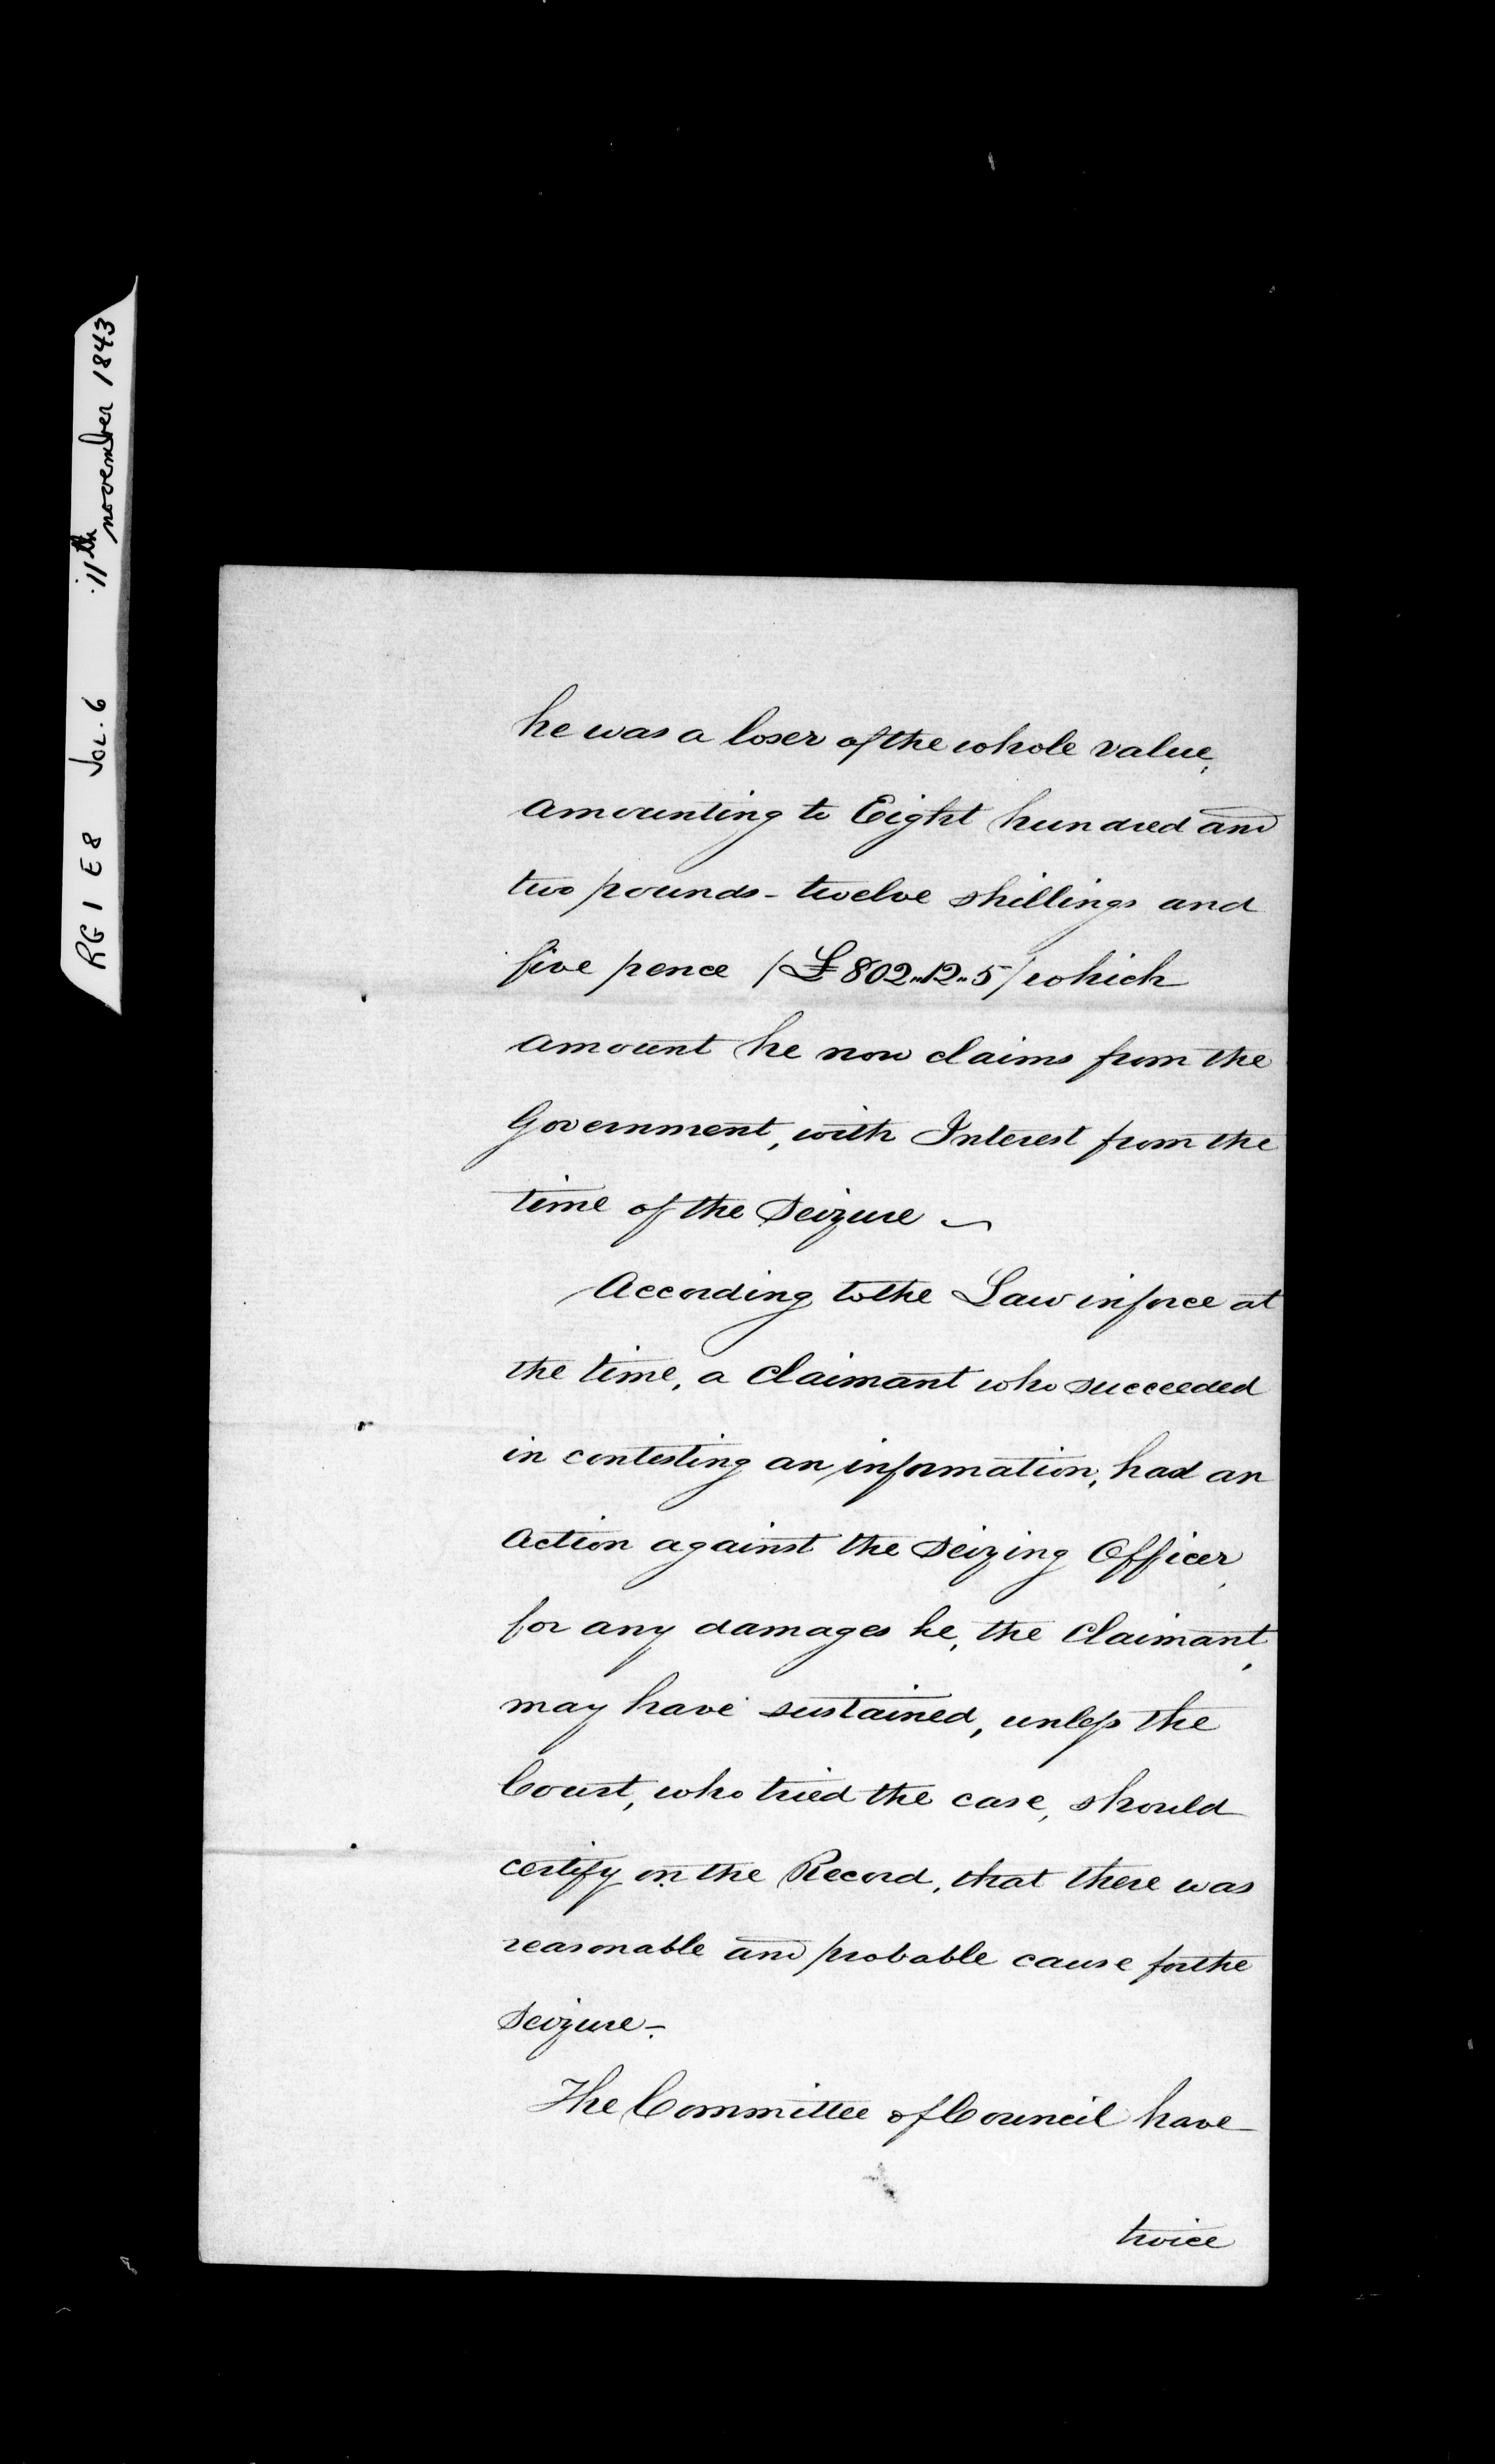 RG 1 E8 Vol. 6 11th november 1843
he was a loser of the whole value,
amounting to Eight hundred and
two pounds - twelve shillings and
five pence /£802..12..5/ which
amount he now claims from the
Government, with Interest from the
time of the Seizure ~
According to the Law in force at
the time, a Claimant who succeeded
in contesting an information, had an
Action against the Seizing Officer,
for any damages he, the Claimant,
may have sustained, unless the
Court, who tried the case, should
certify on the Record, that there was
reasonable and probable cause for the
Seizure -.
The Committee of Council have
twice